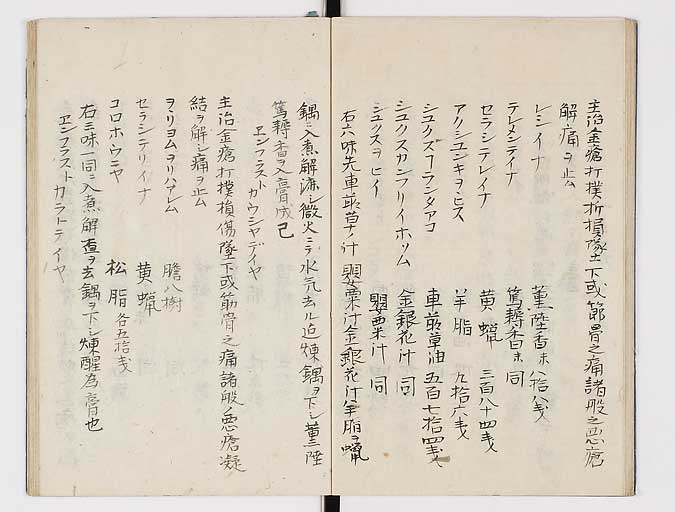 主治金瘡打撲折損墜下或節骨之痛諸般之悪瘡
解痛ヲ止ム
レシイナ 薫陸香ホ八拾八戔
テレメンテイナ 篤耨香ホ同
セラシテレイナ 黄蠟 三百八十四戔
アクシユンキヲヒス 羊脂 九拾六戔
シユクスフランタアコ 車前草油 五百七拾四戔
シユクスカンフリイホツム 金銀花汁 同
シユクスヲヒイ 罌粟汁 同
右六味先車前草ノ汁罌粟汁金銀花汁羊脂ヲ蠟
鍋ニ入煮解漆シ微火ニテ水気去ル迠煉鍋ヲ下シ薫陸
篤耨香ヲ入膏成ル
ヱンフラスト カウシヤデイヤ
主治金瘡打撲損傷墜下或筋骨之痛諸般ノ悪瘡凝
結ヲ解シ痛ヲ止ム
ヲヽリヨムヲリハアレム 膽八樹
セラシテリイナ 黄蠟
コロホウニヤ 松脂 各五拾戔
右三味一同ニ入煮解渣ヲ去鍋ヲ下シ煉醒為膏也
ヱンフラスト カラトテイヤ